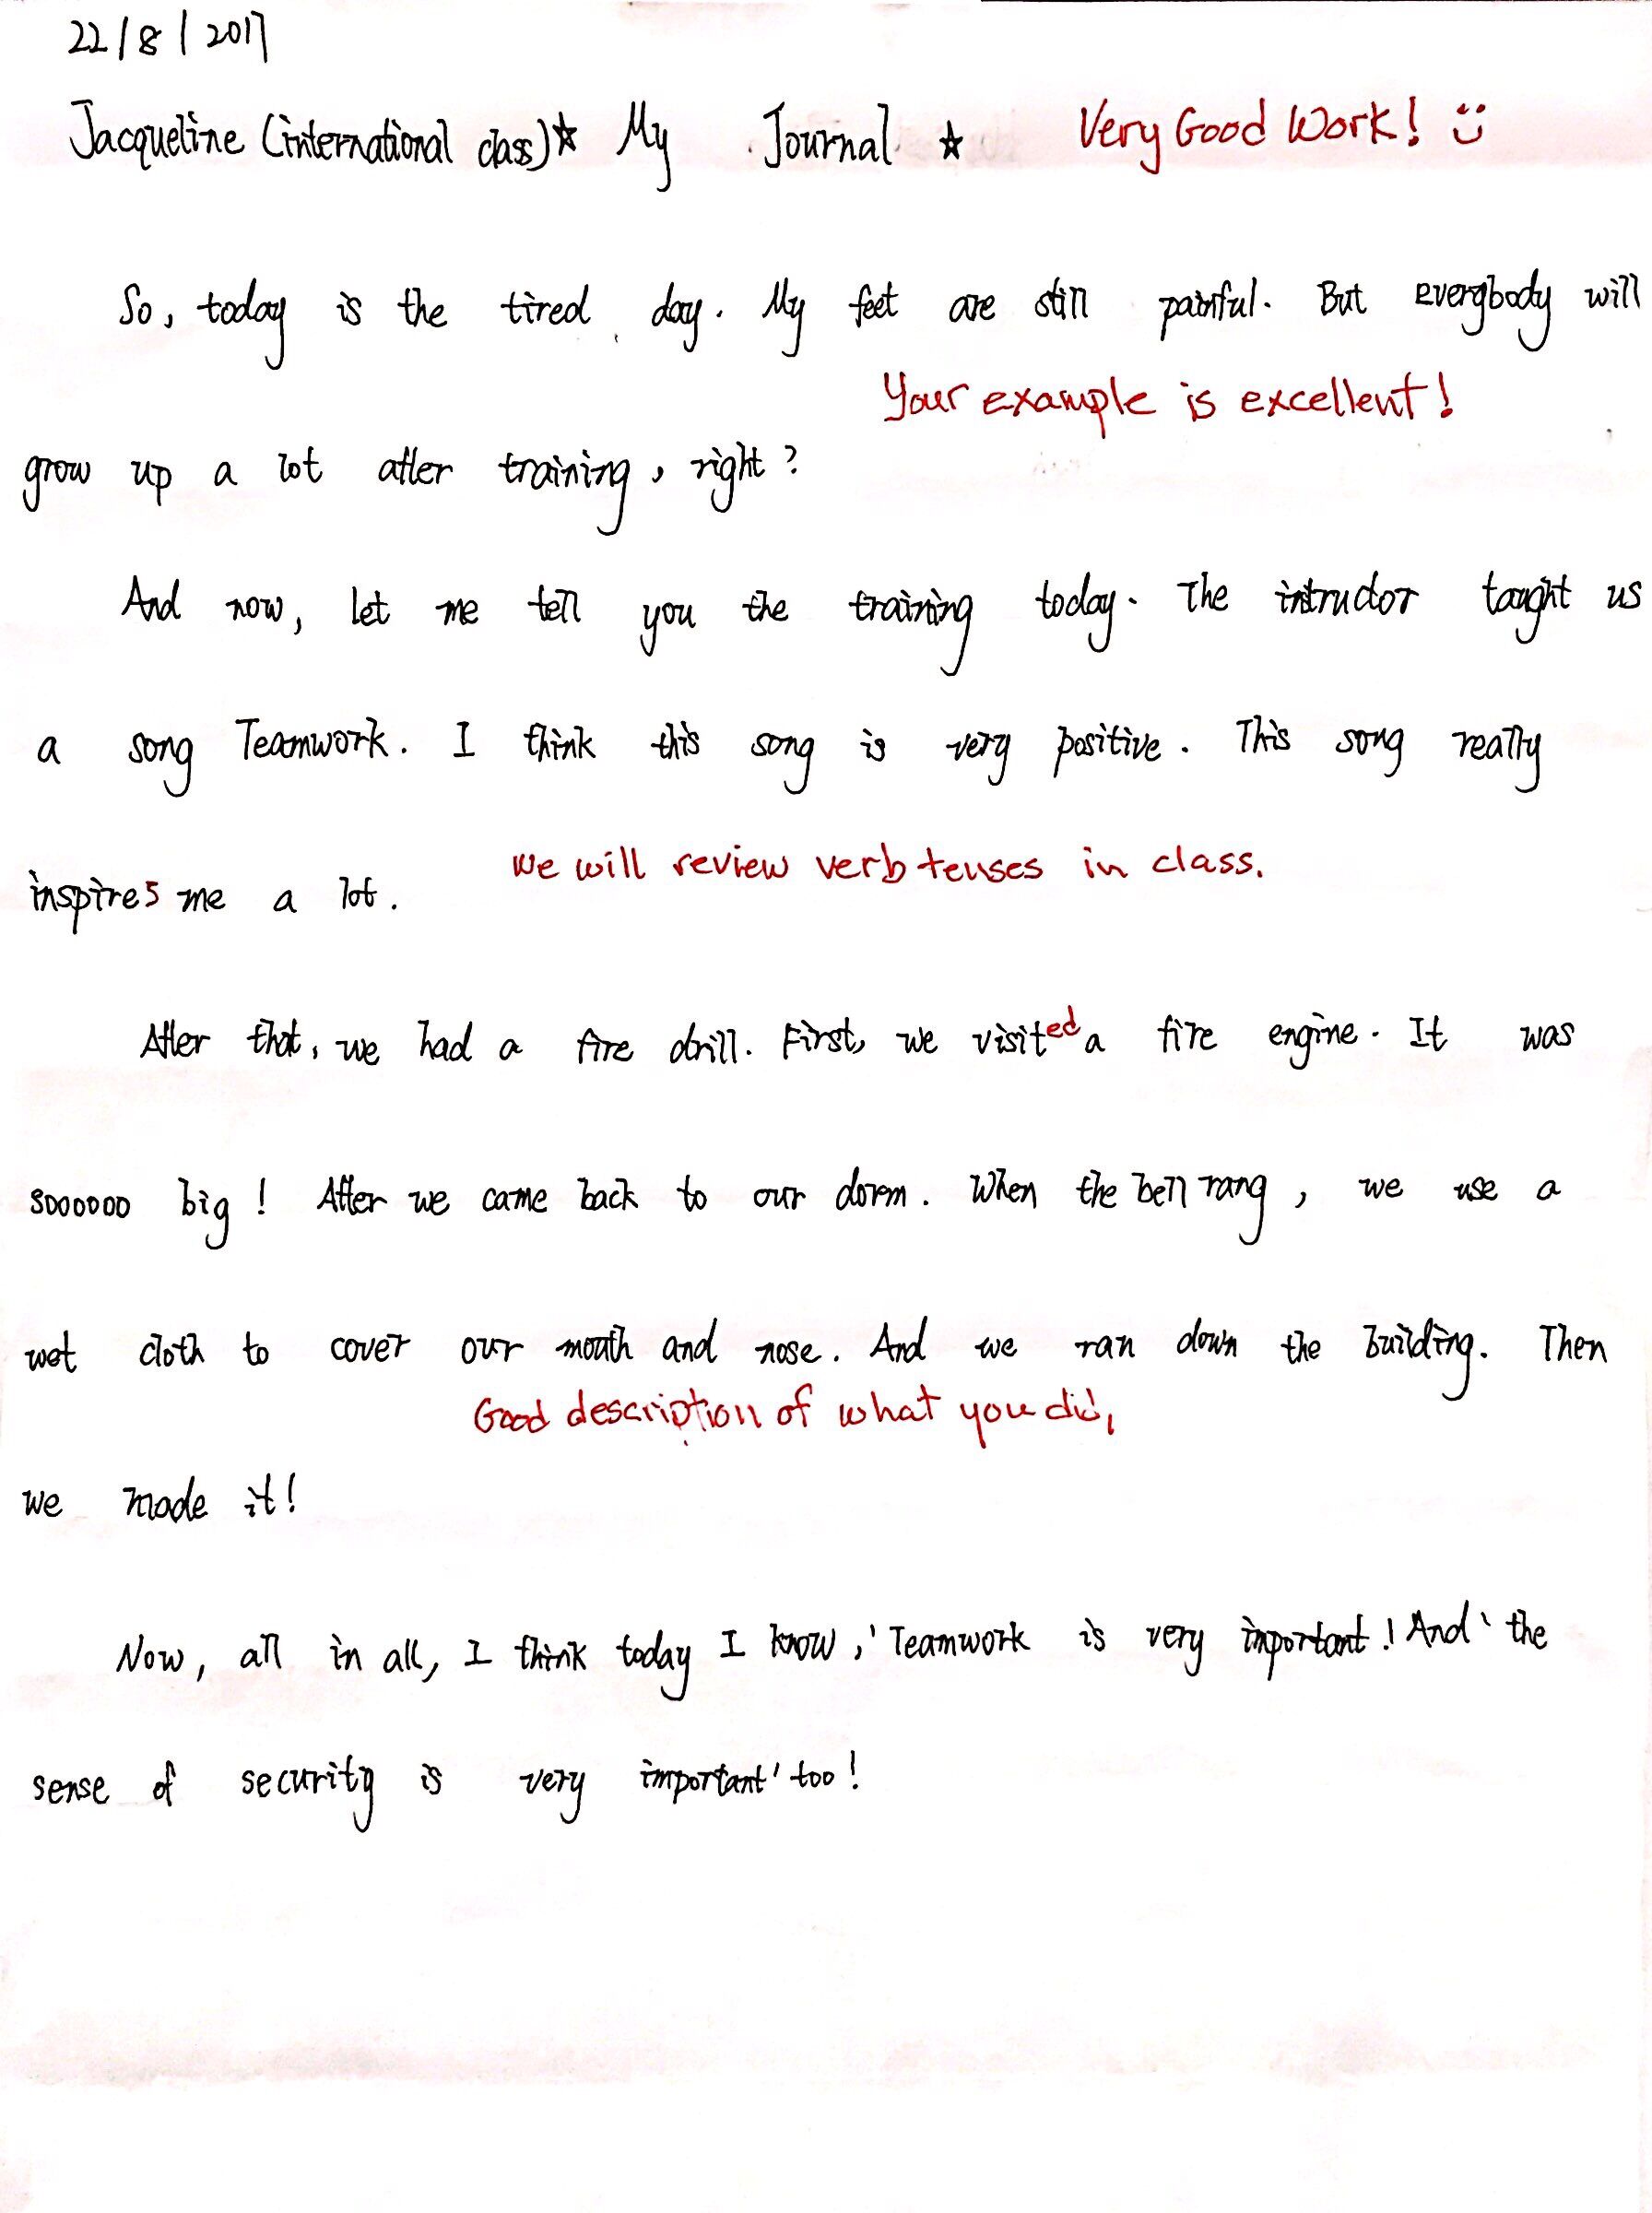 22/8/2017
Jacqueline (international class)☆ My Journal ★ Very Good Work!
So, today is the tired day. My feet are still painful. But everybody will
Your example is excellent!
grow up a lot after training, right?
And now, let me tell you the training today. The intructor taught us
a song Teamwork. I think this song is very positive. This song really
we will review verb tenses in class.
inspires me a lot.
After that, we had a fire drill. First, we visited a fire engine. It was
soooooo big! After we came back to our dorm. When the bell rang, we use a
wet cloth to cover our mouth and nose. And we ran down the building. Then
Good description of what you did,
we made it!
Now, all in all, I think today I know, 'Teamwork is very important! And' the
sense of security is very important' too!